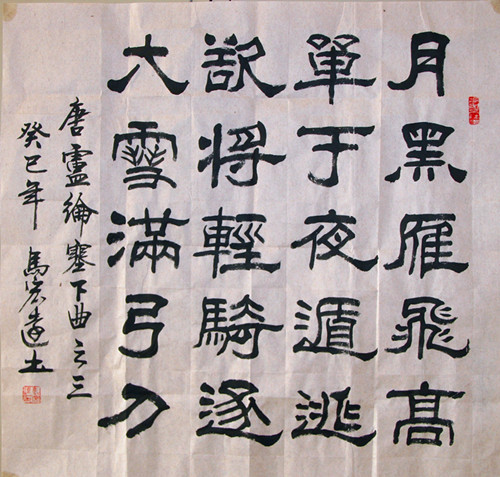 月黑雁飛高
單于夜遁逃
欲将輕騎逐
大雪滿弓刀
唐盧綸塞下曲之三
癸巳年 馬宏书